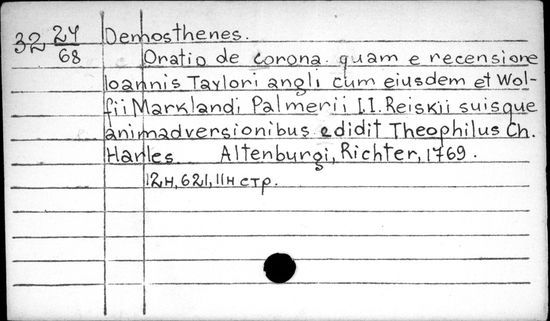 32 24/68 Demosthenes.
Oratio de corona quam e recensione
Ioannis Taylori angli cum eiusdem et Wol-
fii Marklandi Palmerii I.I. Reiskii suisque
animadversionibus edidit Theophilus Ch.
Harles Altenburgi, Richter, 1769.
12н, 621, 11н стр.